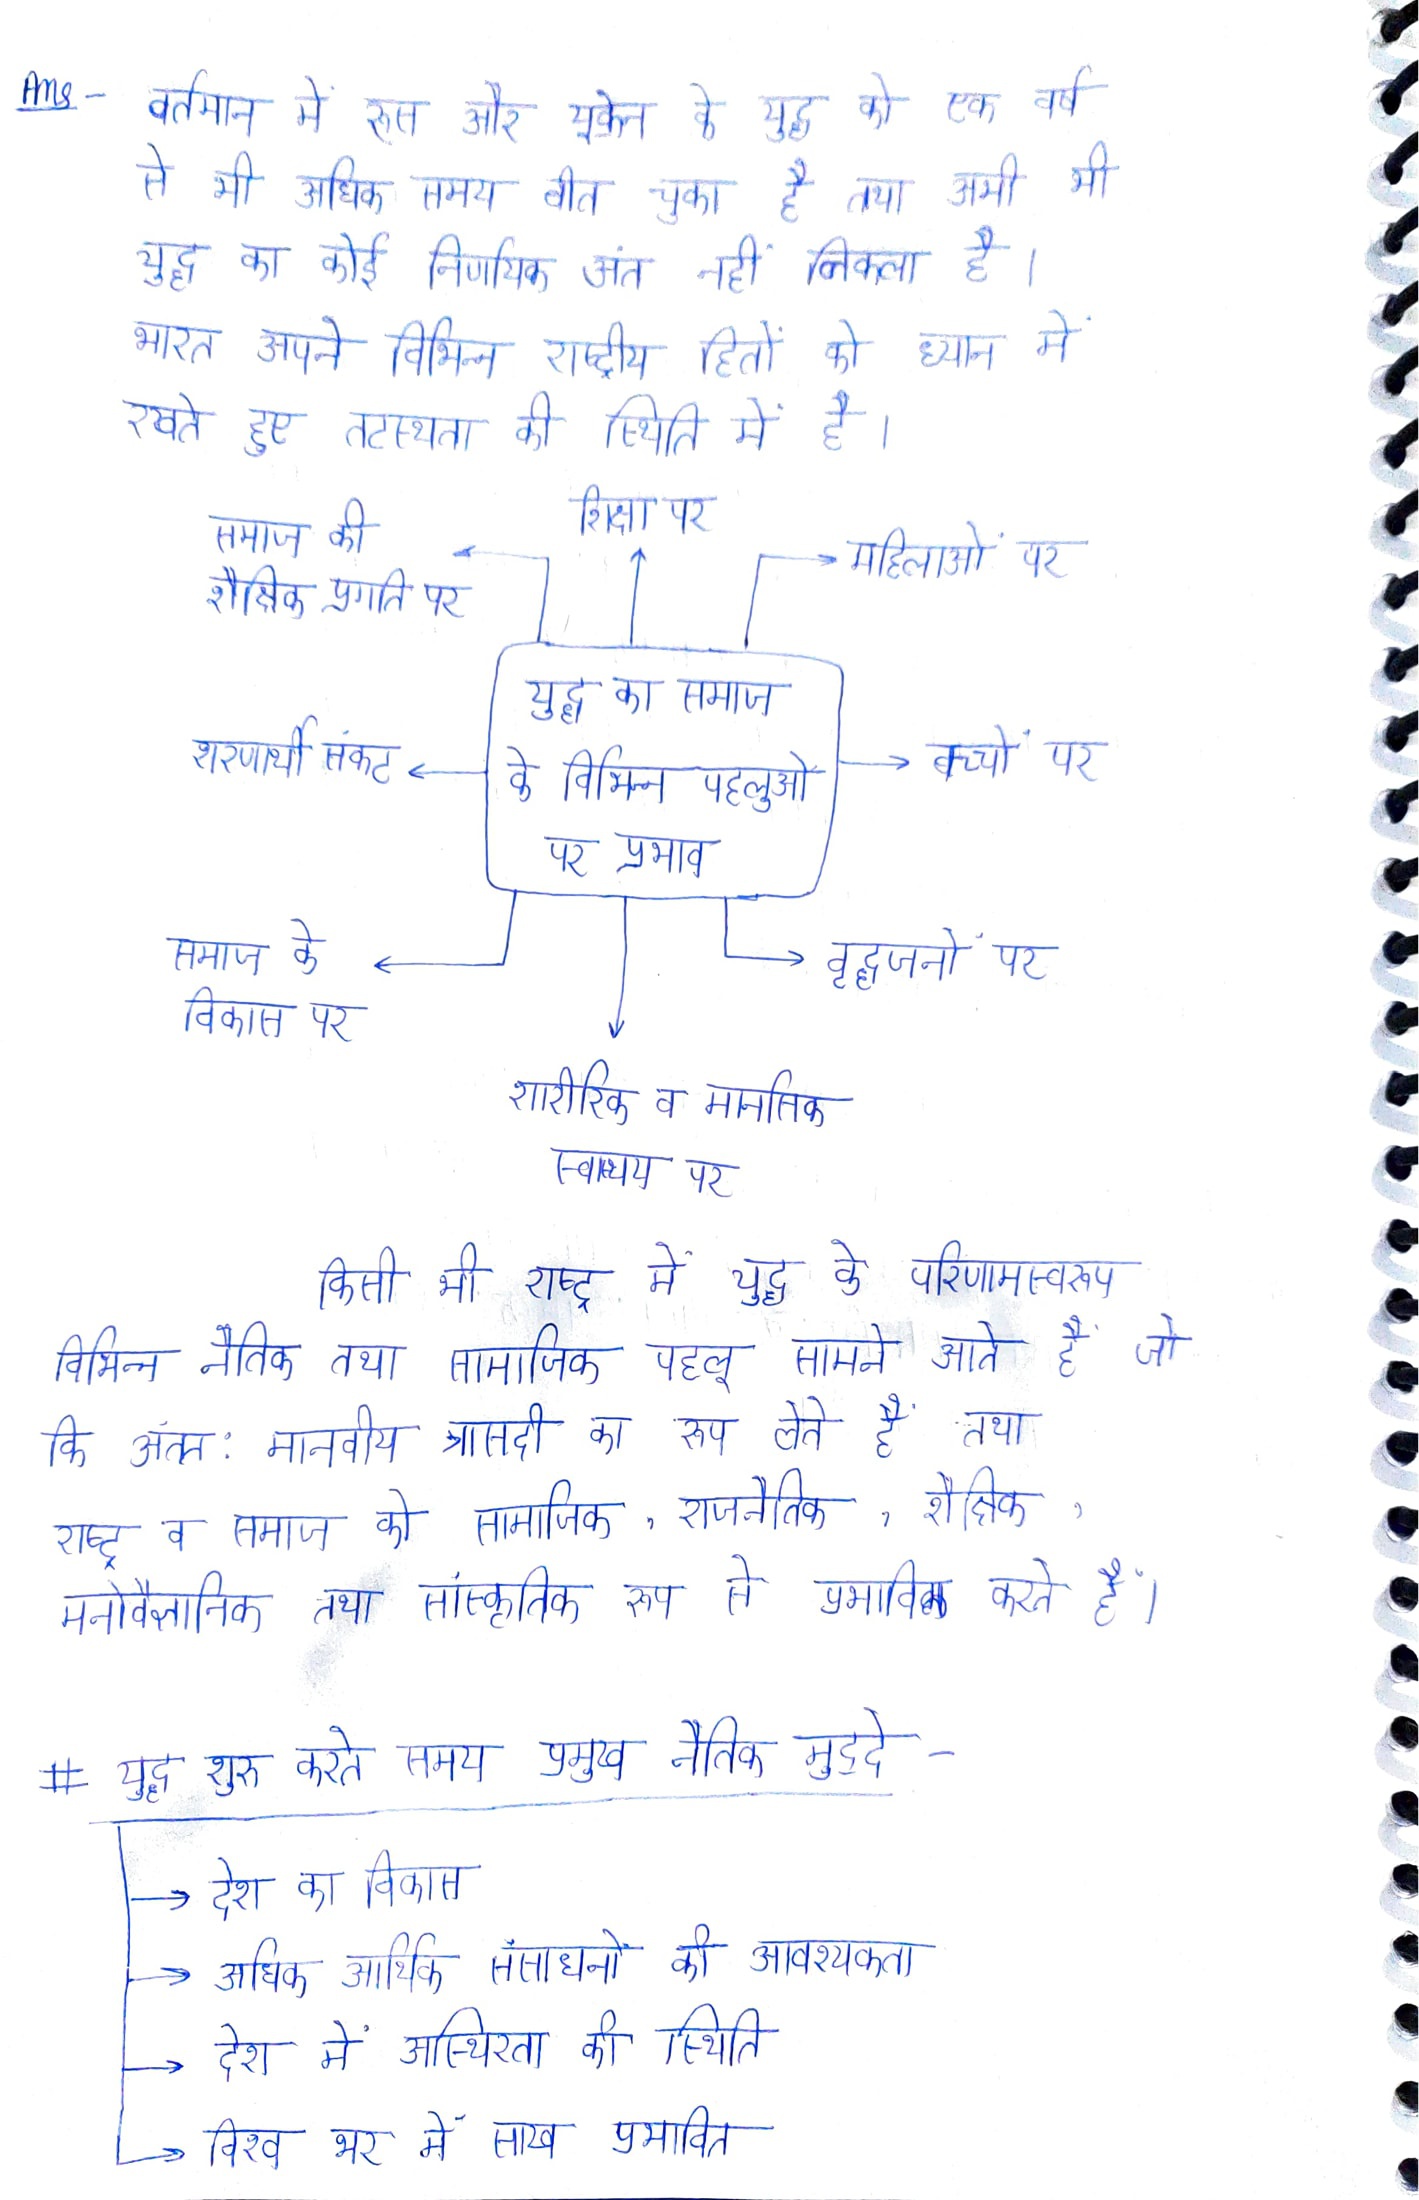 Ans - वर्तमान में रूस और यूक्रेन के युद्ध को एक वर्ष
से भी अधिक समय बीत चुका है तथा अभी भी
युद्ध का कोई निर्णायक अंत नहीं निकला है।
भारत अपने विभिन्न राष्ट्रीय हितों को ध्यान में
रखते हुए तटस्थता की स्थिति में है।
शिक्षा पर
समाज की
शैक्षिक प्रगति पर
महिलाओं पर
युद्ध का समाज
के विभिन्न पहलुओं
पर प्रभाव
शरणार्थी संकट
बच्चों पर
समाज के
विकास पर
वृद्धजनों पर
शारीरिक व मानसिक
स्वाथ्य पर
किसी भी राष्ट्र में युद्ध के परिणामस्वरूप
विभिन्न नैतिक तथा सामाजिक पहलू सामने आते हैं जो
कि अंतत: मानवीय त्रासदी का रूप लेते हैं तथा
राष्ट्र व समाज को सामाजिक, राजनैतिक, शैक्षिक,
मनोवैज्ञानिक तथा सांस्कृतिक रूप से प्रभावित करते हैं।
# युद्ध शुरू करते समय प्रमुख नैतिक मुद्दे -
देश का विकास
अधिक आर्थिक संसाधनों की आवश्यकता
देश में अस्थिरता की स्थिति
विश्व भर में साख प्रभावित